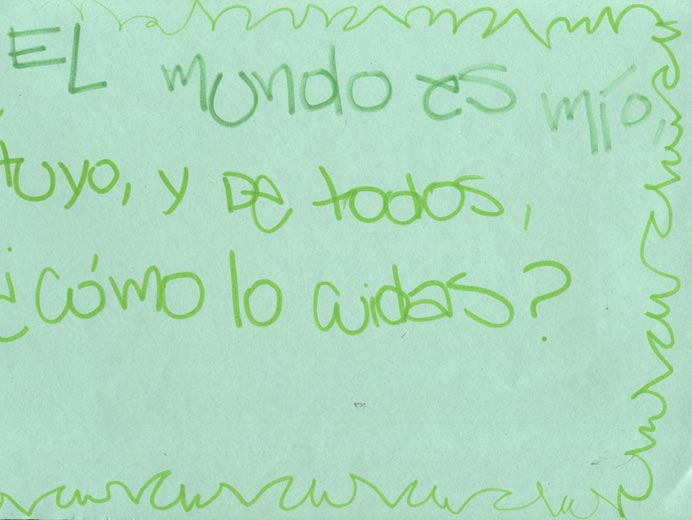 EL mundo es mío,
tuyo, y DE todos,
¿cómo lo cuidas?